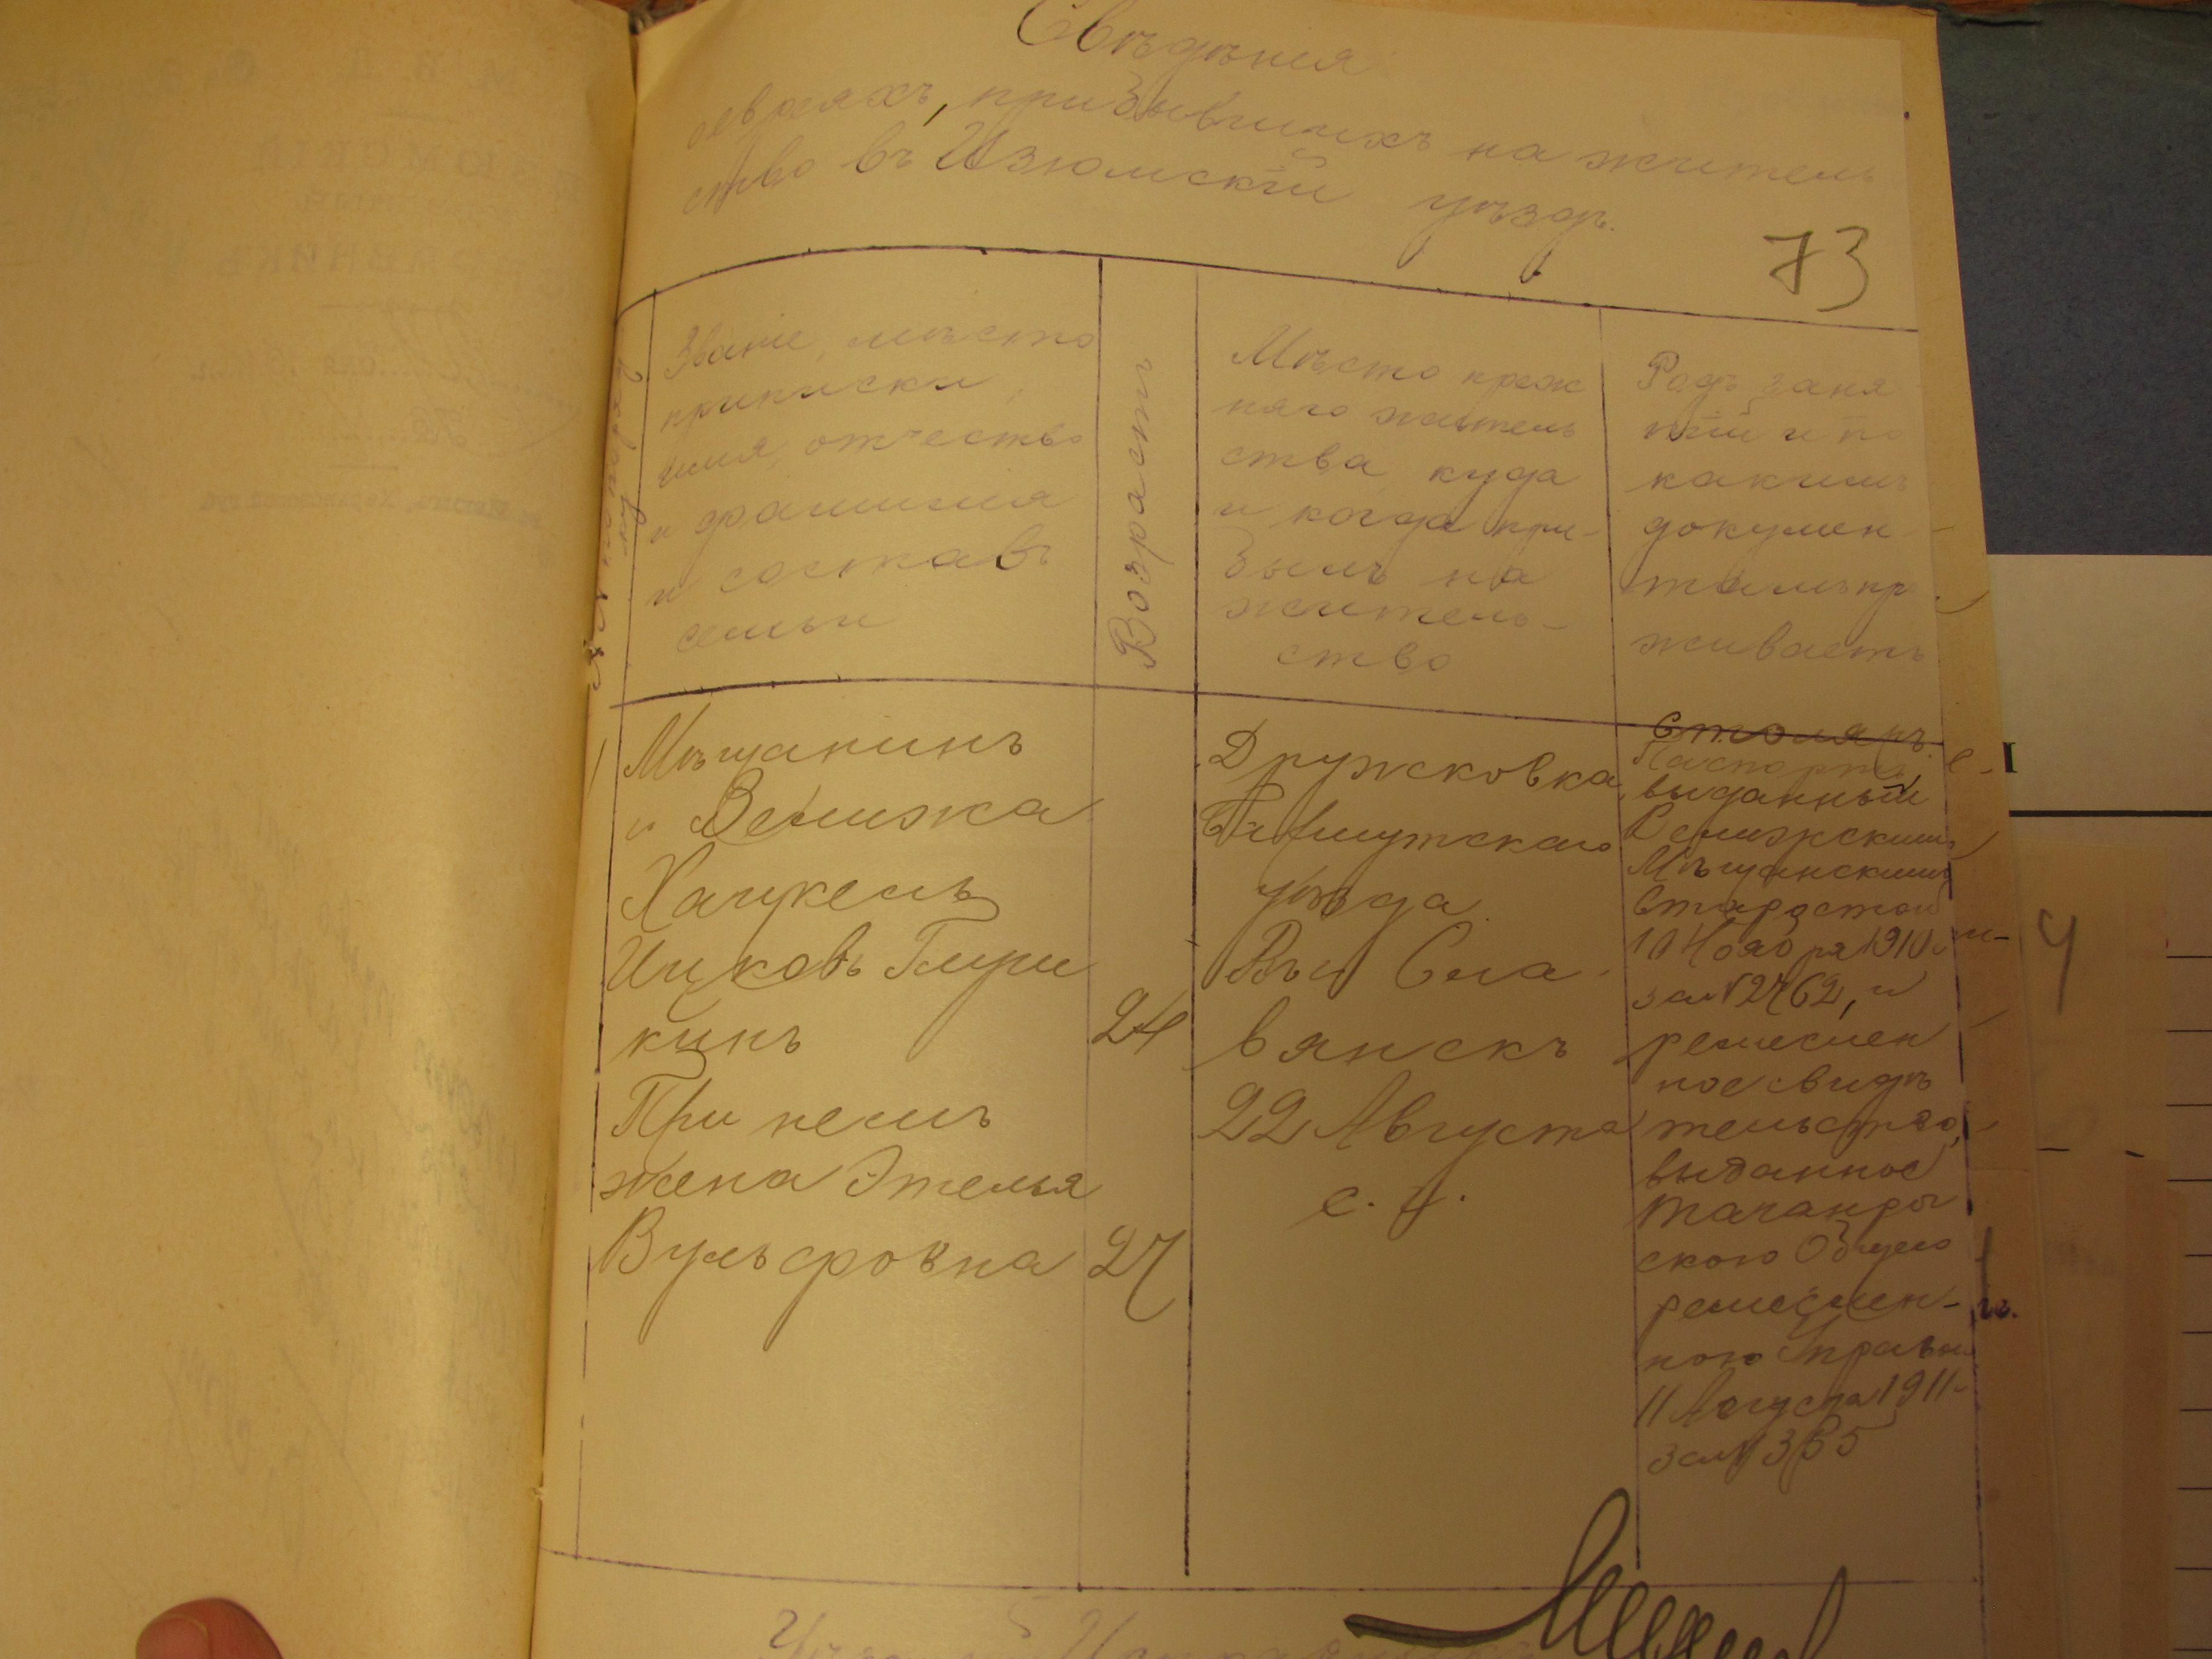 Свѣдѣнія
евреяхъ, прибывшихъ на житель
ство въ Изюмскій уѣздъ.
73
№ по порядку
Званіе, мѣсто
приписки,
имя, отчество
и фамилія
и составъ
семьи
Возрастъ
Мѣсто преж
няго житель
ства, куда
и когда при-
былъ на
житель-
ство
Родъ заня
тій и по
какимъ
докумен
тамъ пр
живаетъ
1
Мѣщанинъ
г. Велижа
Ицковъ
кинъ
24
При немъ
жена Этелья
Вульфовна
27
Дружковка,
Бахмутскаго
уѣзда
Въ г. Сла
вянскъ
22 Августа
с. г.
Столяръ
Паспортъ,
выданный
Велижскимъ
Мѣщанскимъ
Старостой
10 Ноября 1910 г.
за № 2762, и
ремеслен
ное свидѣ
тельство,
выданное
Таганро
скою Общею
ремеслен-
ною Управою
11 Августа 1911 г.
за № 365